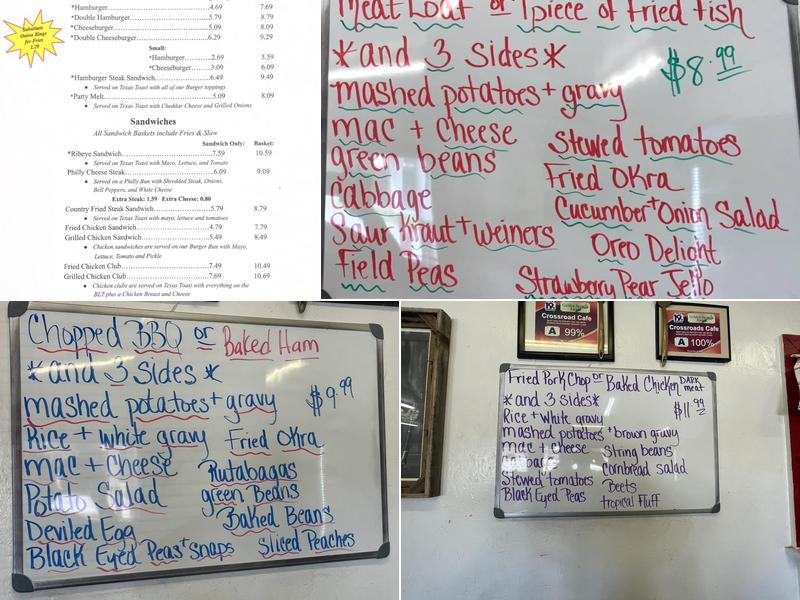 Substitute
Onion Rings
for Fries
1.79
*Hamburger 4.69 7.69
*Double Hamburger 5.79 8.79
*Cheeseburger 5.09 8.09
*Double Cheeseburger 6.29 9.29
Small:
*Hamburger 2.69 5.59
*Cheeseburger 3.09 6.09
*Hamburger Steak Sandwich 6.49 9.49
• Served on Texas Toast with all of our Burger toppings
*Patty Melt 5.09 8.09
• Served on Texas Toast with Cheddar Cheese and Grilled Onions
Sandwiches
All Sandwich Baskets include Fries & Slaw
Sandwich Only: Basket:
*Ribeye Sandwich 7.59 10.59
• Served on Texas Toast with Mayo, Lettuce, and Tomato
Philly Cheese Steak 6.09 9.09
• Served on a Philly Bun with Shredded Steak, Onions,
Bell Peppers, and White Cheese
Extra Steak: 1.59 Extra Cheese: 0.80
Country Fried Steak Sandwich 5.79 8.79
• Served on Texas Toast with mayo, lettuce and tomatoes
Fried Chicken Sandwich 4.79 7.79
Grilled Chicken Sandwich 5.49 8.49
• Chicken sandwiches are served on our Burger Bun with Mayo,
Lettuce, Tomato and Pickle
Fried Chicken Club 7.49 10.49
Grilled Chicken Club 7.69 10.69
• Chicken clubs are served on Texas Toast with everything on the
BLT plus a Chicken Breast and Cheese
Meat Loaf or 1piece of Fried fish
*and 3 sides*
$8.99
mashed potatoes + gravy
mac + cheese
Stewed tomatoes
green beans
Fried Okra
Cabbage
Cucumber + Onion Salad
Saur Kraut + weiners
Oreo Delight
Field Peas
Strawberry Pear Jello
Chopped BBQ or Baked Ham
*and 3 sides*
$9.99
mashed potatoes + gravy
Rice + white gravy
Fried Okra
mac + cheese
Rutabagas
Potato Salad
green Beans
Deviled Egg
Baked Beans
Black Eyed Peas + snaps
Sliced Peaches
Crossroad Cafe
A 99%
Crossroads Cafe
A 100%
Fried Pork Chop or Baked Chicken DARK meat
*and 3 sides*
$11.99
Rice + white gravy
mashed potatoes + brown gravy
mac + cheese
String beans
Cabbage
Cornbread salad
Stewed tomatoes
Beets
Black Eyed Peas
tropical Fluff